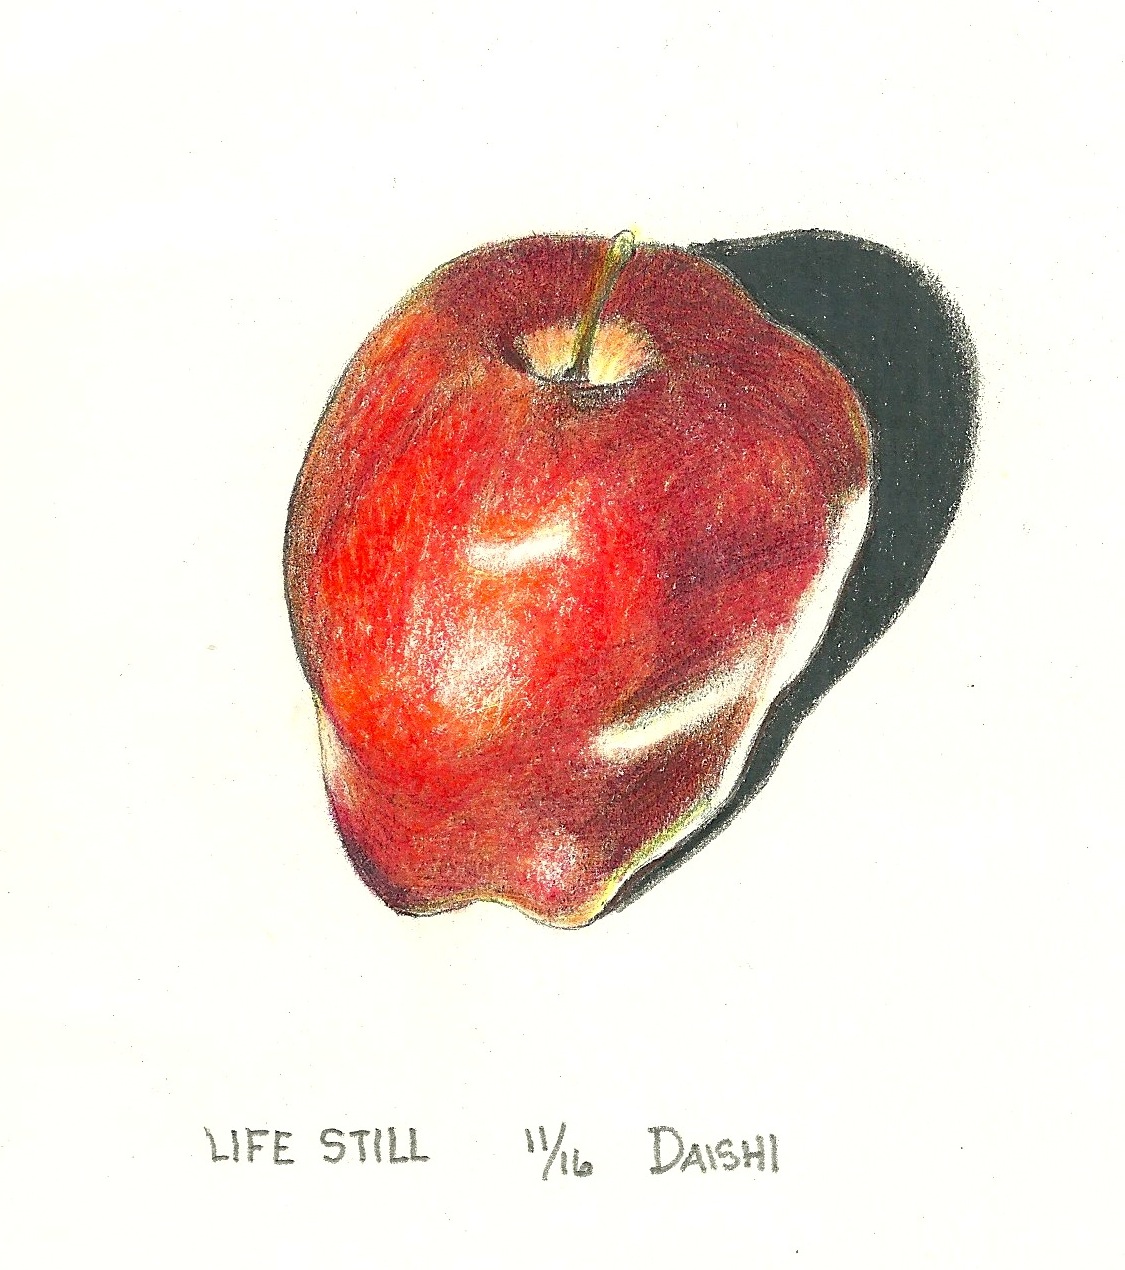 LIFE STILL 11/16 DAISHI